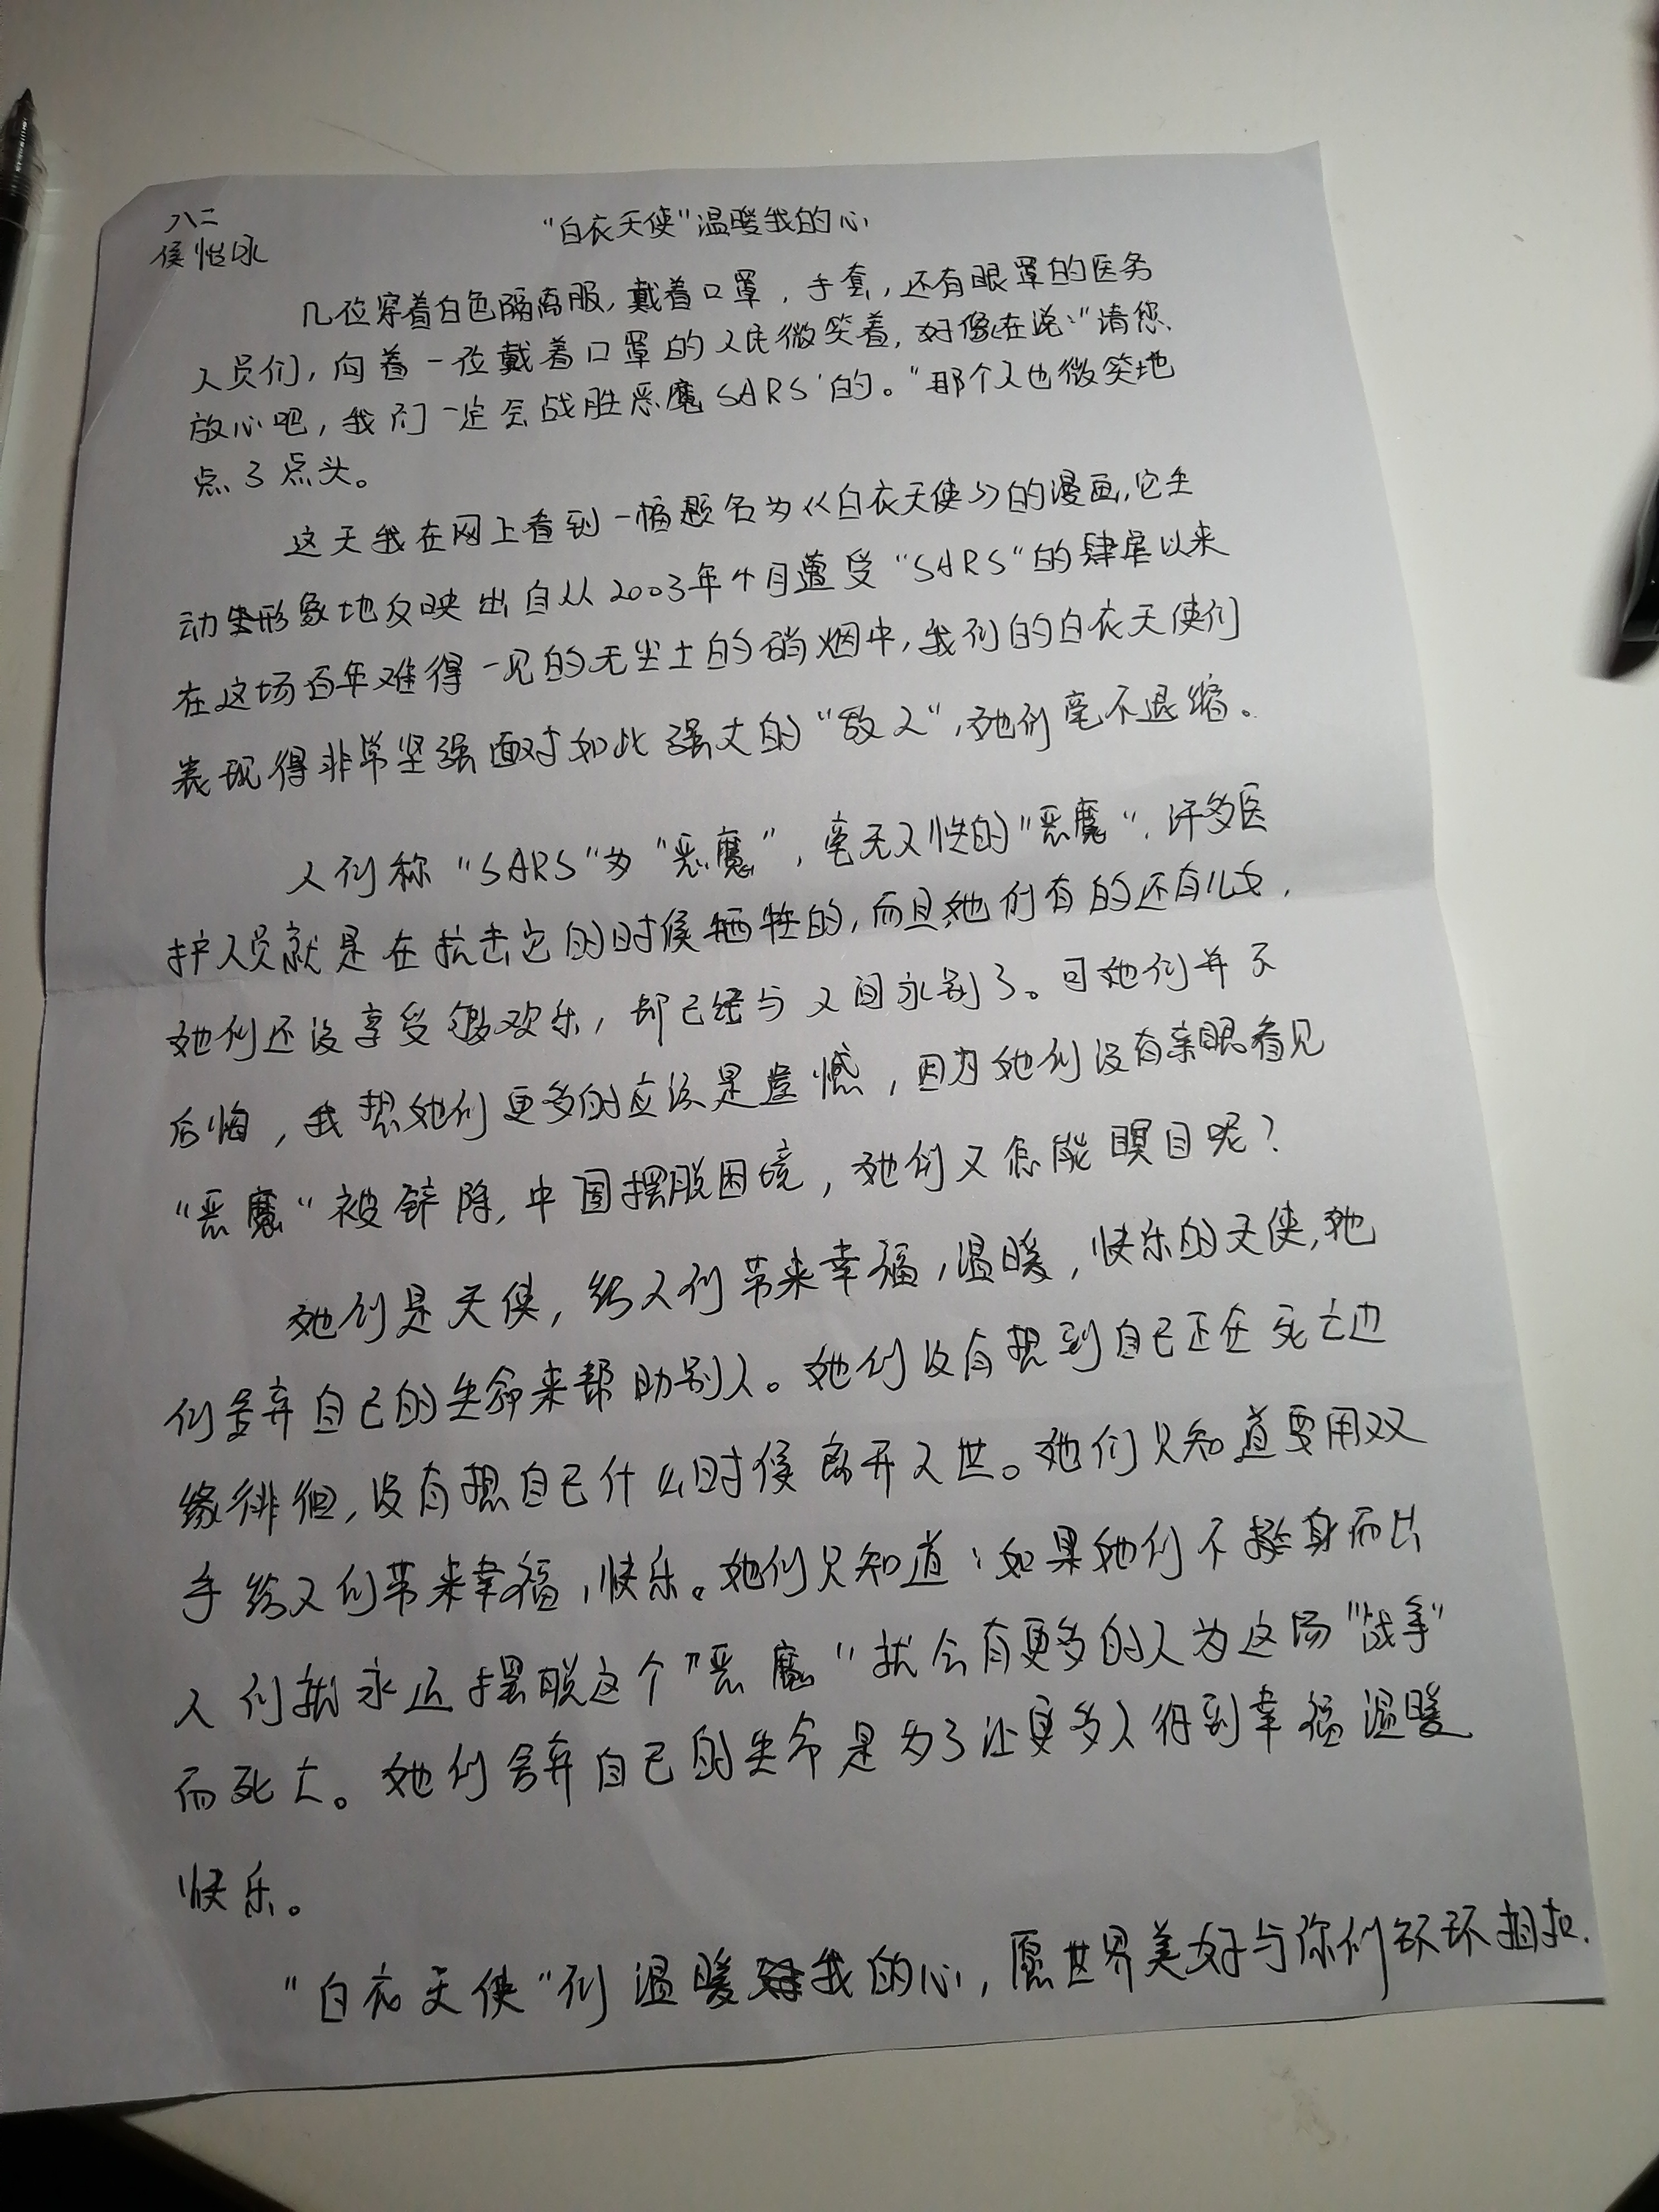 八二
侯怡泳
"白衣天使"温暖我的心
几位穿着白色隔离服,戴着口罩,手套,还有眼罩的医务
人员们,向着一位戴着口罩的人民微笑着,好像在说:"请您
放心吧,我们一定会战胜恶魔SARS的。"那个人也微笑地
点了点头。
这天我在网上看到一幅题名为《白衣天使》的漫画,它生
动形象地反映出自从2003年4月遭受"SARS"的肆虐以来
在这场百年难得一见的无尘土的硝烟中,我们的白衣天使们
表现得非常坚强面对如此强大的"敌人",她们毫不退缩。
人们称"SARS"为"恶魔",毫无人性的"恶魔",许多医
护人员就是在抗击它的时候牺牲的,而且她们有的还有儿女,
她们还没享受够欢乐,却已经与人间永别了。可她们并不
后悔,我想她们更多的应该是遗憾,因为她们没有亲眼看见
"恶魔"被铲除,中国摆脱困境,她们又怎能瞑目呢?
她们是天使,给人们带来幸福,温暖,快乐的天使,她
们舍弃自己的生命来帮助别人。她们没有想到自己正在死亡边
缘徘徊,没有想自己什么时候离开人世。她们只知道要用双
手给人们带来幸福,快乐。她们只知道:如果她们不挺身而出
人们就永远摆脱这个"恶魔"就会有更多的人为这场"战争"
而死亡。她们舍弃自己的生命是为了让更多人得到幸福温暖
快乐。
"白衣天使"们温暖我的心,愿世界美好与你们环环相扣.